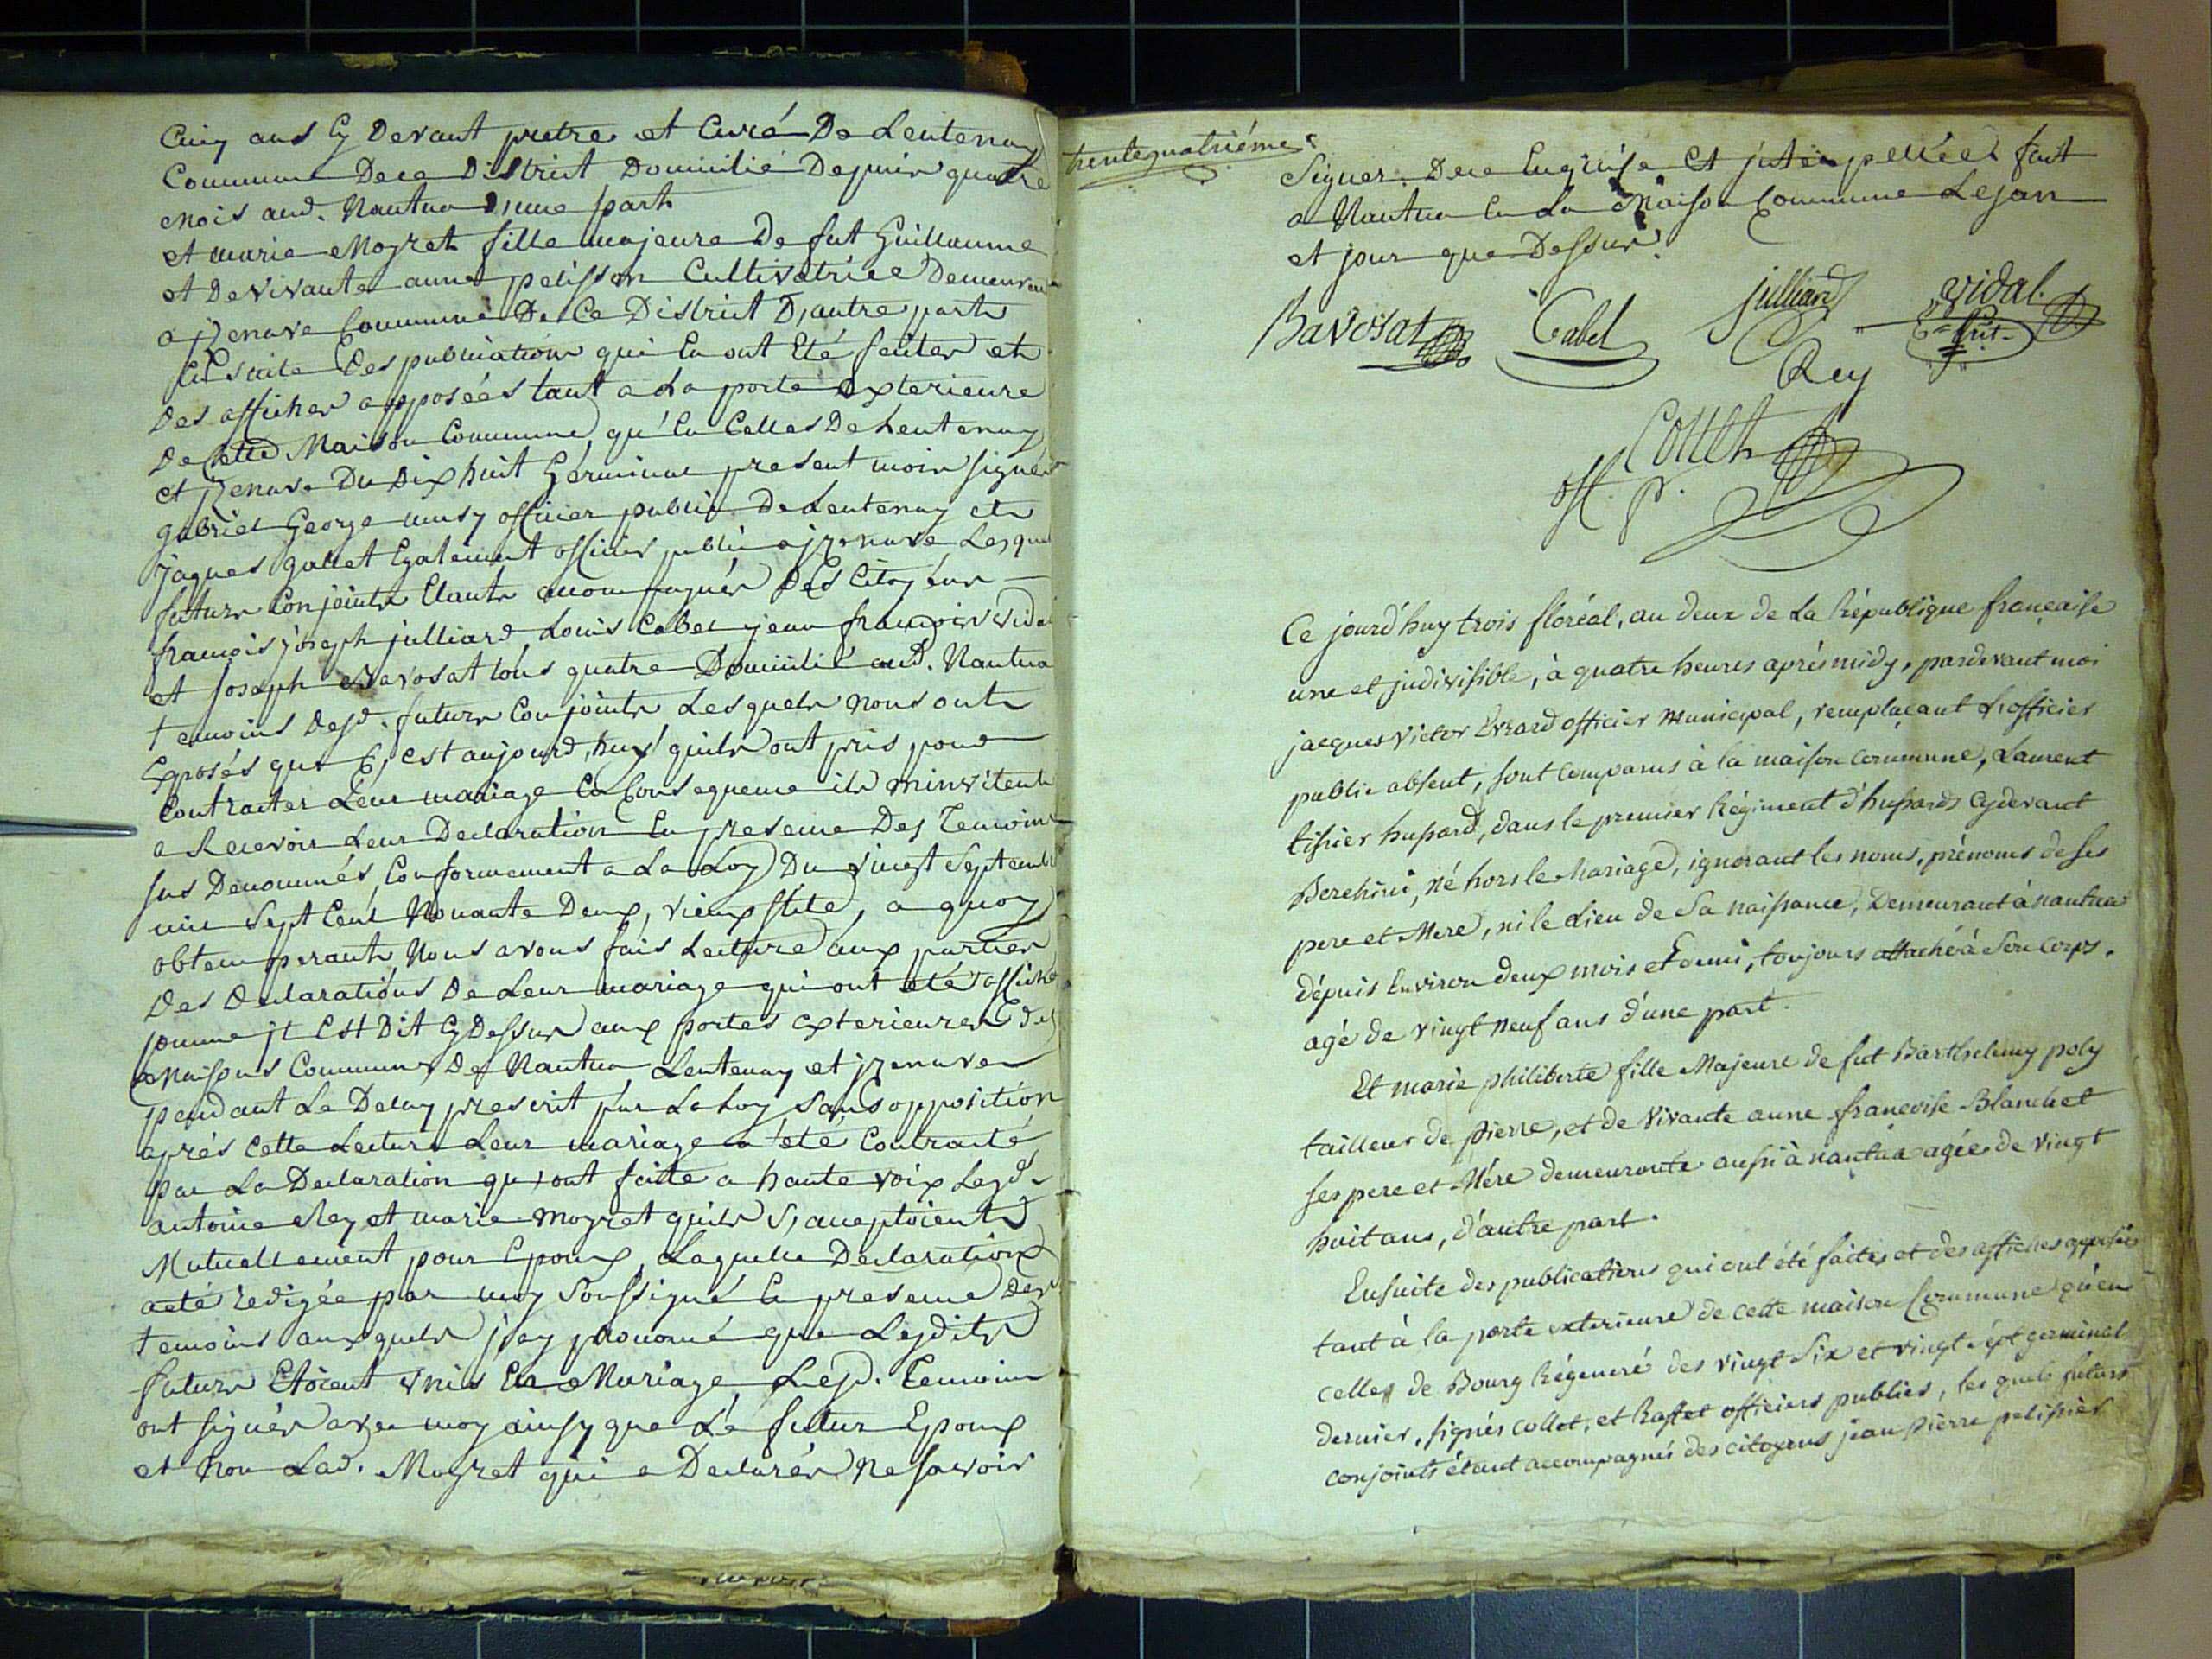 Cinq ans Cy Devant pretre et Curé De Lentenay
Commune Dece District Domicilié Depuis quatre
mois aud. Nantua D'une part
et marie Moyret fille majeure De fut Guillaume
et De vivante anne pelisson Cultivatrice Demeuran
a jzenave Commune De Ce District D,autre part
Ensuite Des publications qui En ont Eté faites et
Des affiches apposées tant a La porte Exterieure
De Cette Maison Commune, qu'En Celles De Lentenay
et jzenave Du Dix huit Germinal present mois signés
gabriel George musy officier public De Lentenay et
jaques gallet Egalement officier public a jzenave Lesquel
futurs Conjoints Etants accompagnés Des Citoyens
francois joseph julliard Louis Cabel jean francois Vidal
et joseph Bavosat tous quatre Domicilié aud. Nantua
temoins Desd. futurs Conjoints Lesquels nous ont
Exposés que C,est aujourd,huy quils ont pris pour
Contracter Leur mariage En Consequence ils minvitent
a Recevoir Leur Declaration En presence Des Temoins
sus Denommés, Conformement a La Loy Du vingt Septembre
mil Sept Cent Nonante Deux, vieux stile, a quoy
obtemperants Nous avons fais Lecture aux parties
Des Declarations De Leur mariage qui ont eté affiché
comme jl Est Dit Cy Dessus aux portes exterieures des
Maisons Communes De Nantua Lentenay et jzenave
pendant Le Delay prescrit par La Loy sans opposition
aprés Cette Lecture Leur mariage a été Contracté
par La Declaration qu,ont faite a haute voix Lesd.
antoine Rey et marie moyret quils S,acceptoient
Mutuellement pour Epoux, Laquelle Declaration
aeté redigée par moy Soussigné En presence Des
temoins auxquels j'ay prononcé que Lesdits
futurs Etoient Vnis En Mariage, Lesd. Temoins
ont signés avec moy ainsy que Le futur Epoux
et Non Lad. Moyret qui a Declarés Ne savoir
trentequatriéme
Signer. Dece Enquise et jnterpellée fait
a Nantua En La Maison Commune Lesan
et jour que Dessus.
Bavosat Cabel julliard vidal
Rey
Collet
off. p.
Ce jourd'huy trois floréal, an deux de La République française
une et jndivisible, à quatre heures aprés midy, pardevant moi
jacques Victor Evrard officier Municipal, remplaçant L'officier
public absent, sont comparus à la maison commune, Laurent
tissier hussard, dans le premier Régiment d'hussards Cydevant
Berchini, né hors le Mariage, ignorant les noms, prénoms de ses
pere et Mere, ni le Lieu de Sa naissance, Demeurant à nantua
dépuis Environ deux mois et demi, toujours attaché à Son Corps.
agé de vingt neuf ans d'une part.
Et marie philiberte fille Majeure de fut Barthelemy poly
tailleur de pierre, et de Vivante anne francoise Blanchet
ses pere et Mére demeurante aussi à nantua agée de vingt
huit ans, d'autre part.
Ensuite des publications qui ont été faites et des affiches apposées
tant à la porte exterieure de cette maison Commune qu'en
celles de Bourg Régeneré des vingt Six et vingt sépt germinal
dernier, signés collet, et Raffet officiers publics, les quels futurs
conjoints étant accompagnés des citoyens jean pierre pelissier